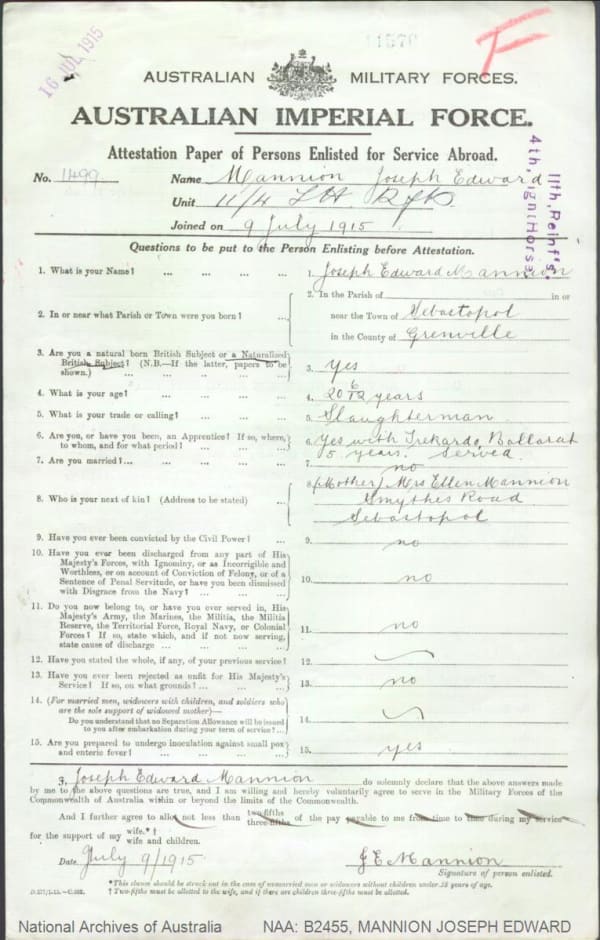 16 JUL 1915
11576
AUSTRALIAN MILITARY FORCES.
AUSTRALIAN IMPERIAL FORCE.
Attestation Paper of Persons Enlisted for Service Abroad.
No. 1499 Name Mannion Joseph Edward
Unit 11/4 L H Rfts.
Joined on 9 July 1915
11th, Reinf's,
4th, Light Horse
Questions to be put to the Person Enlisting before Attestation.
1. What is your Name? ... ... ... ... 1. Joseph Edward Mannion
2. In or near what Parish or Town were you born? ... 2. In the Parish of in or
near the Town of Sebastopol
in the County of Grenville
3. Are you a natural born British Subject or a Naturalized
British Subject? (N.B.—If the latter, papers to be
shown.) ... ... ... ... 3. Yes
4. What is your age? ... ... ... ... 4. 20 6/12 years
5. What is your trade or calling? ... ... ... 5. Slaughterman
6. Are you, or have you been, an Apprentice? If so, where,
to whom, and for what period? ... ... ... 6. Yes with Trekardo, Ballarat
5 years. Served.
7. Are you married?... ... ... ... ... 7. no
8. Who is your next of kin? (Address to be stated) ... 8. (Mother) Mrs Ellen Mannion
Smythes Road
Sebastopol
9. Have you ever been convicted by the Civil Power? ... 9. no
10. Have you ever been discharged from any part of His
Majesty's Forces, with Ignominy, or as Incorrigible and
Worthless, or on account of Conviction of Felony, or of a
Sentence of Penal Servitude, or have you been dismissed
with Disgrace from the Navy? ... ... ... 10. no
11. Do you now belong to, or have you ever served in, His
Majesty's Army, the Marines, the Militia, the Militia
Reserve, the Territorial Force, Royal Navy, or Colonial
Forces? If so, state which, and if not now serving,
state cause of discharge ... ... ... ... 11. no
12. Have you stated the whole, if any, of your previous service? 12.
13. Have you ever been rejected as unfit for His Majesty's
Service? If so, on what grounds? ... ... ... 13. no
14. (For married men, widowers with children, and soldiers who
are the sole support of widowed mother)—
Do you understand that no Separation Allowance will be issued
to you after embarkation during your term of service?... 14.
15. Are you prepared to undergo inoculation against small pox
and enteric fever? ... ... ... ... 15. yes
I, Joseph Edward Mannion do solemnly declare that the above answers made
by me to the above questions are true, and I am willing and hereby voluntarily agree to serve in the Military Forces of the
Commonwealth of Australia within or beyond the limits of the Commonwealth.
And I further agree to allot not less than two-fifths three-fifths of the pay payable to me from time to time during my service
for the support of my wife.*† wife and children.
Date July 9/1915 J E Mannion
Signature of person enlisted.
*This clause should be struck out in the case of unmarried men or widowers without children under 18 years of age.
† Two-fifths must be allotted to the wife, and if there are children three-fifths must be allotted.
National Archives of Australia NAA: B2455, MANNION JOSEPH EDWARD